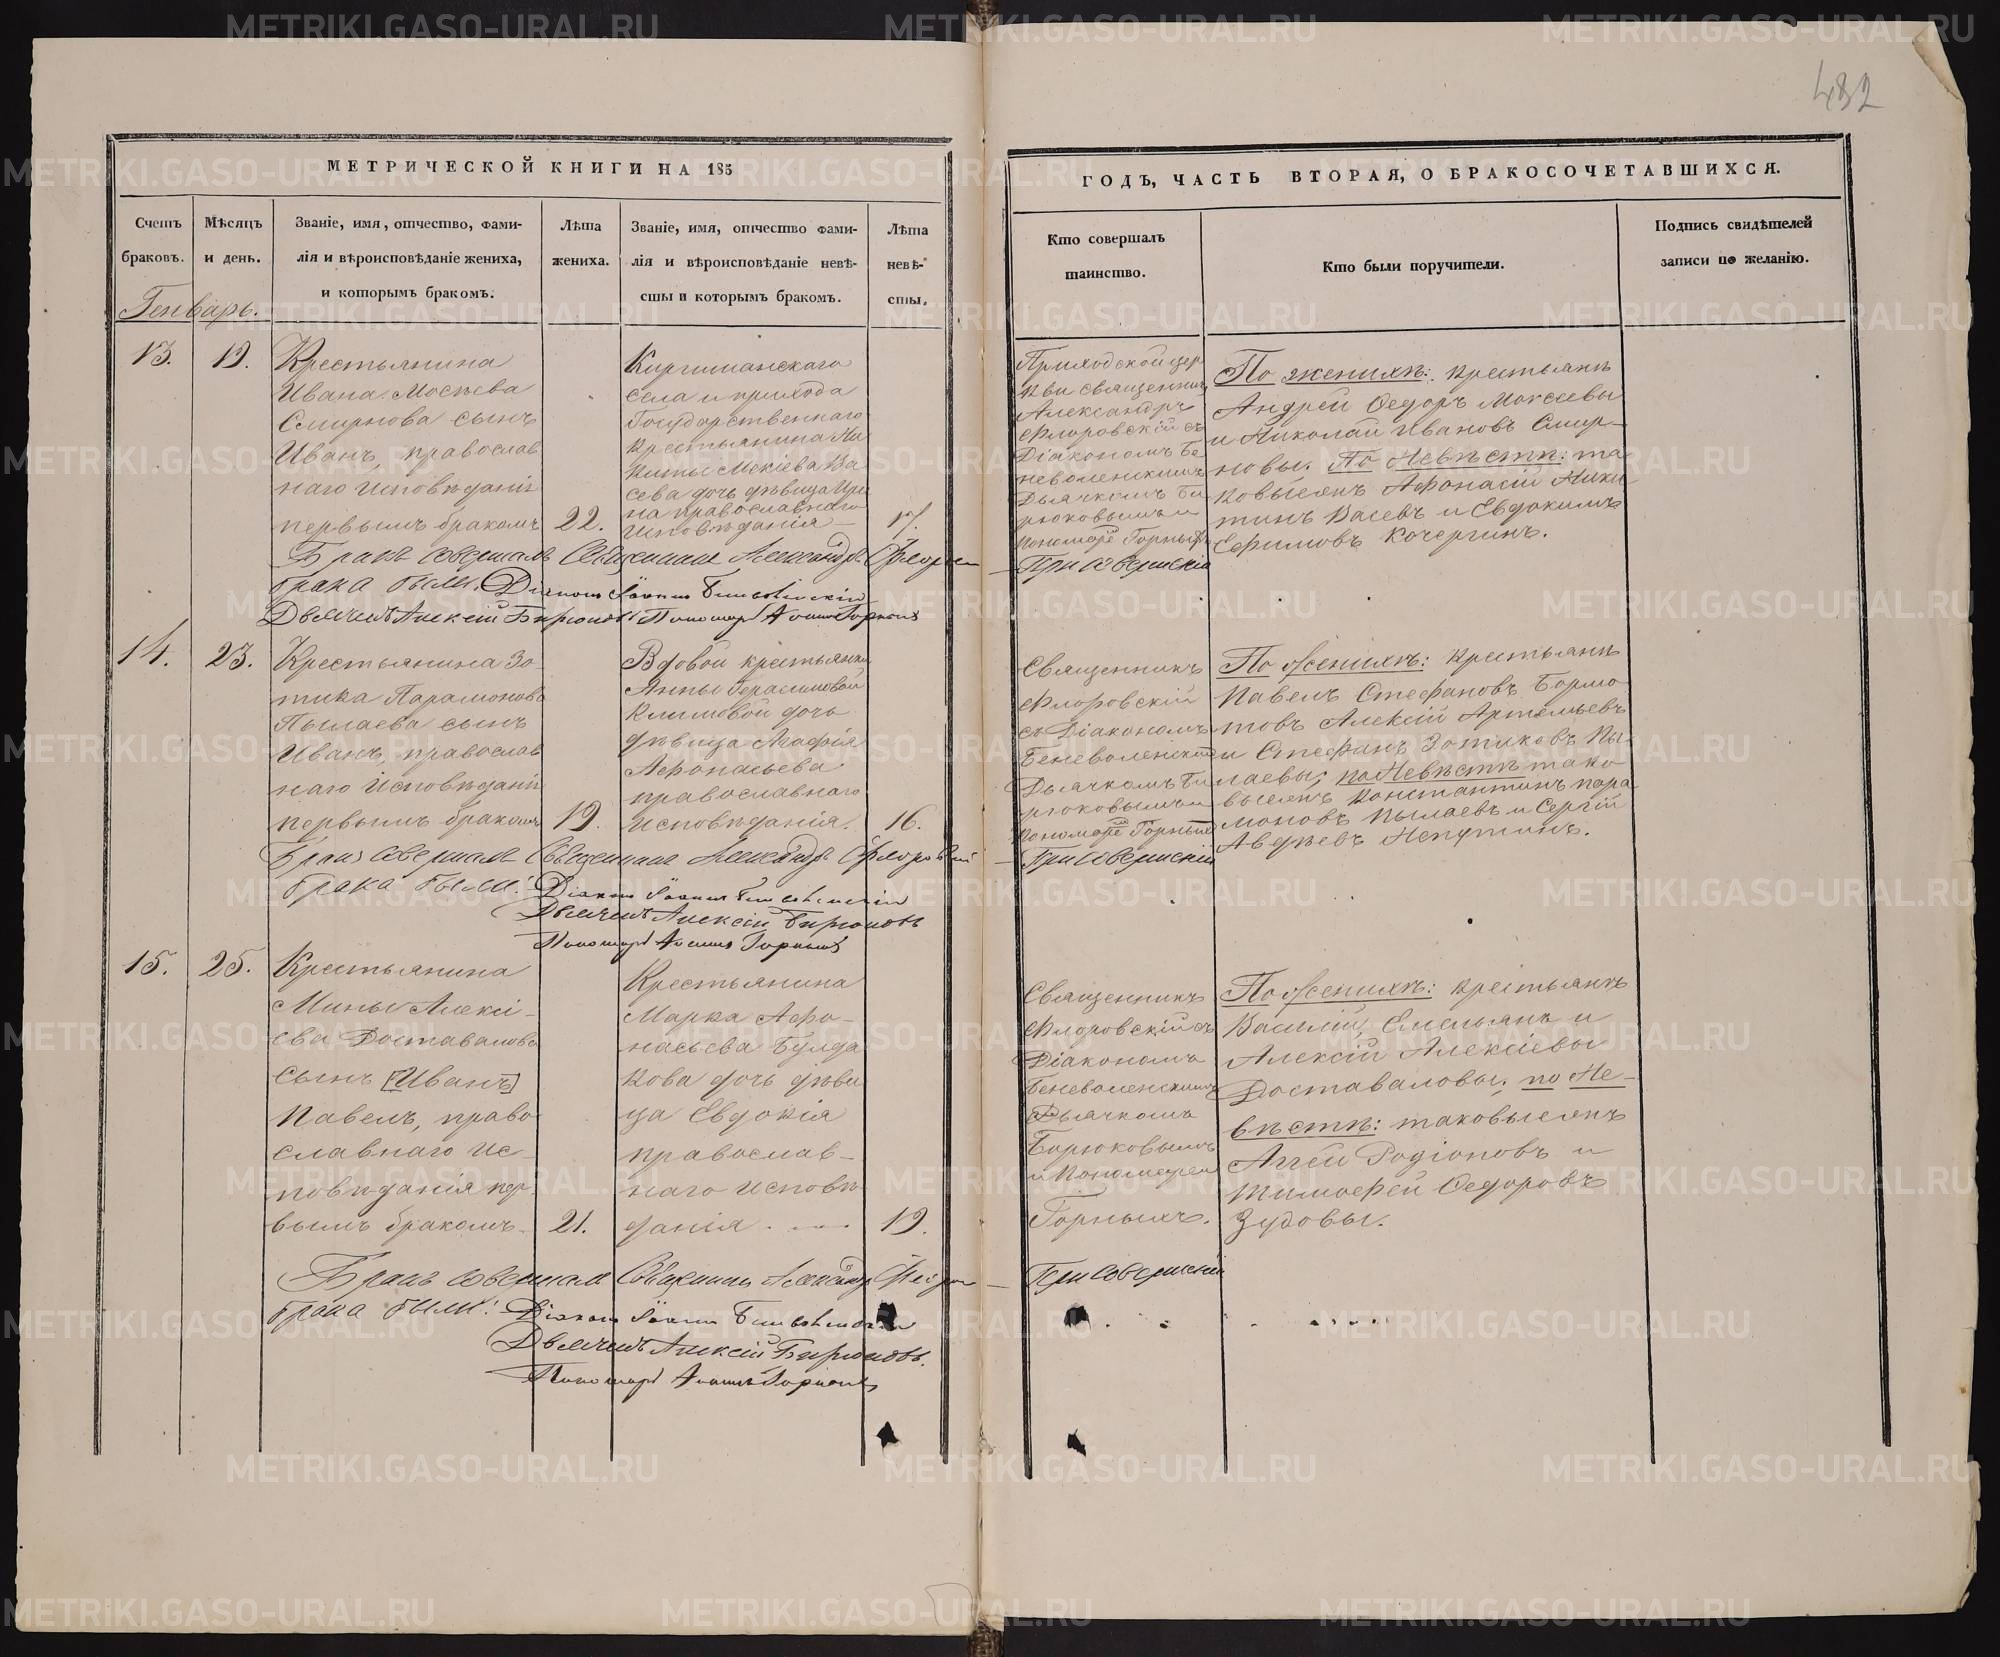 482
МЕТРИЧЕСКОЙ КНИГИ НА 185
ГОДЪ, ЧАСТЬ ВТОРАЯ, О БРАКОСОЧЕТАВШИХСЯ.
Счетъ
браковъ.
Мѣсяцъ
и день.
Званіе, имя, отчество, фами-
лія и вѣроисповѣданіе жениха,
и которымъ бракомъ.
Лѣта
жениха.
Званіе, имя, отчество фами-
лія и вѣроисповѣданіе невѣ-
сты и которымъ бракомъ.
Лѣта
невѣ-
сты.
Кто совершалъ
таинство.
Кто были поручители.
Подпись свидѣтелей
записи по желанію.
Генварь.
13.
19.
Крестьянина
Ивана Мосѣева
Смирнова сынъ
Иванъ, православ
наго исповѣданія
первымъ бракомъ
22.
села и прихода
Государственнаго
крестьянина Ни
киты
сева дочь дѣвица Ири
на православнаго
исповѣданія
17.
Приходской цер
кви священникъ
Александръ
Флоровскій съ
Діакономъ Бе
неволенскимъ
Дьячкомъ Би
рюковымъ и
Пономаремъ Горныхъ
По женихѣ: крестьянѣ
Андрей Ѳедоръ Мокеевы
и Николай Ивановъ Смир-
новы. По Невѣстѣ: та
ковыеянъ Афонасій Ники
тинъ Васевъ и Евдокимъ
Ефимовъ Кочергинъ.
Бракъ совершалъ Священникъ Александръ Флоров
При совершеніи
брака были: Діаконъ Іоаннъ Беневоленскій
Дьячекъ Алексій Бирюковъ Пономарь Горныхъ
14.
23.
Крестьянина Зо
тика Парамонова
Пылаева сынъ
Иванъ, православ
наго исповѣданія
первымъ бракомъ
19.
Вдовой крестьянки
Анны Герасимовой
Климовой дочь
дѣвица Агафія
Афонасьева
православнаго
исповѣданія.
16.
Священникъ
Флоровскій
съ Діакономъ
Беневоленскимъ
Дьячкомъ Би
рюковымъ и
Пономаремъ Горныхъ
По Женихѣ: крестьянѣ
Павелъ Стефановъ Бормо
товъ Алексій Артемьевъ
и Стефанъ Зотиковъ Пы-
лаевы; по Невѣстѣ тако
выеянъ Константинъ Пара
моновъ Пылаевъ и Сергій
Авдѣевъ
Бракъ совершалъ Священникъ Александръ Флоровскій
При совершеніи
брака были: Діаконъ Іоаннъ Беневоленскій
Дьячекъ Алексій Бирюковъ
Пономарь Горныхъ
15.
25.
Крестьянина
Мины Алексі-
ева Доставалова
сынъ [Иванъ]
Павелъ, право
славнаго ис-
повѣданія пер
вымъ бракомъ.
21.
Крестьянина
Марка Афо-
насьева Булда
кова дочь дѣви
ца Евдокія
православ-
наго исповѣ
данія
19.
Священникъ
Флоровскій съ
Діакономъ
Беневоленскимъ
Дьячкомъ
Бирюковымъ
и Пономаремъ
Горныхъ.
По Женихѣ: крестьянѣ
Василій, Емельянъ и
Алексій Алексіевы
Доставаловы; по Не-
вѣстѣ: таковыеянъ
Аггей Родіоновъ и
Тимоѳей Ѳедоровъ
Зудовы.
Бракъ совершалъ Священникъ Александръ Флоров
При совершеніи
брака были: Діаконъ Іоаннъ Беневоленскій
Дьячекъ Алексій Бирюковъ.
Пономарь Горныхъ
METRIKI.GASO-URAL.RU